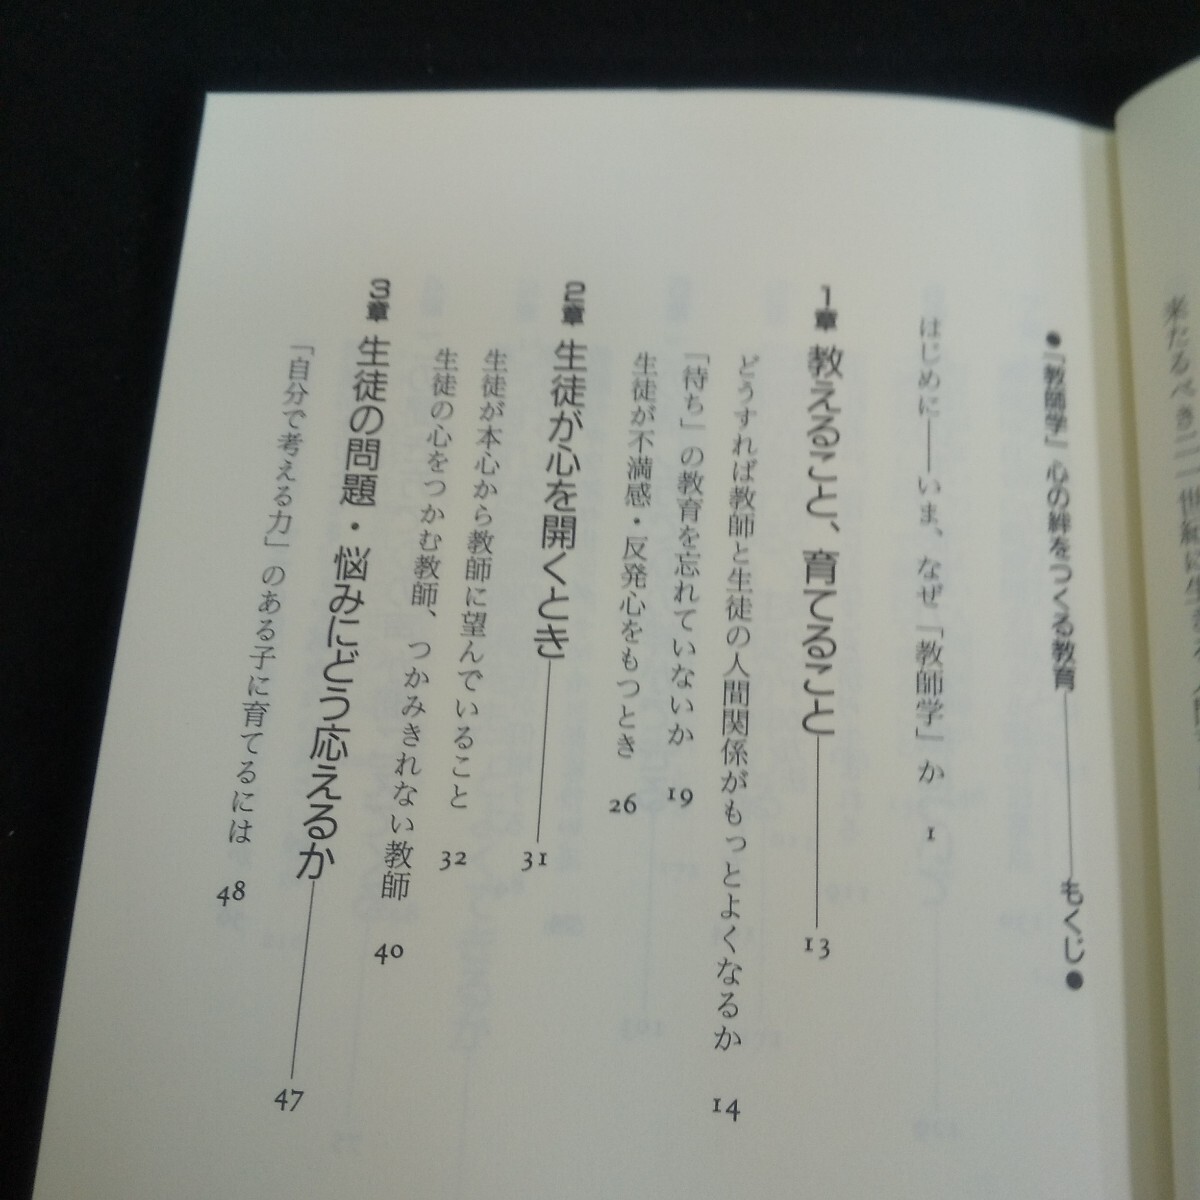 来たるべき二一世紀に生
●「教師学」心の絆をつくる教育――もくじ●
はじめに――いま、なぜ「教師学」か 1
1章 教えること、育てること――13
どうすれば教師と生徒の人間関係がもっとよくなるか 14
「待ち」の教育を忘れていないか 19
生徒が不満感・反発心をもつとき 26
2章 生徒が心を開くとき――31
生徒が本心から教師に望んでいること 32
生徒の心をつかむ教師、つかみきれない教師 40
3章 生徒の問題・悩みにどう応えるか――47
「自分で考える力」のある子に育てるには 48